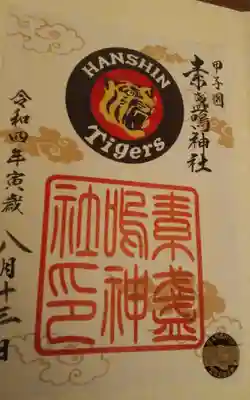 甲子園
素盞嗚神社
HANSHIN
Tigers
素盞
嗚神
社印
令和四年寅歳
八月十三日